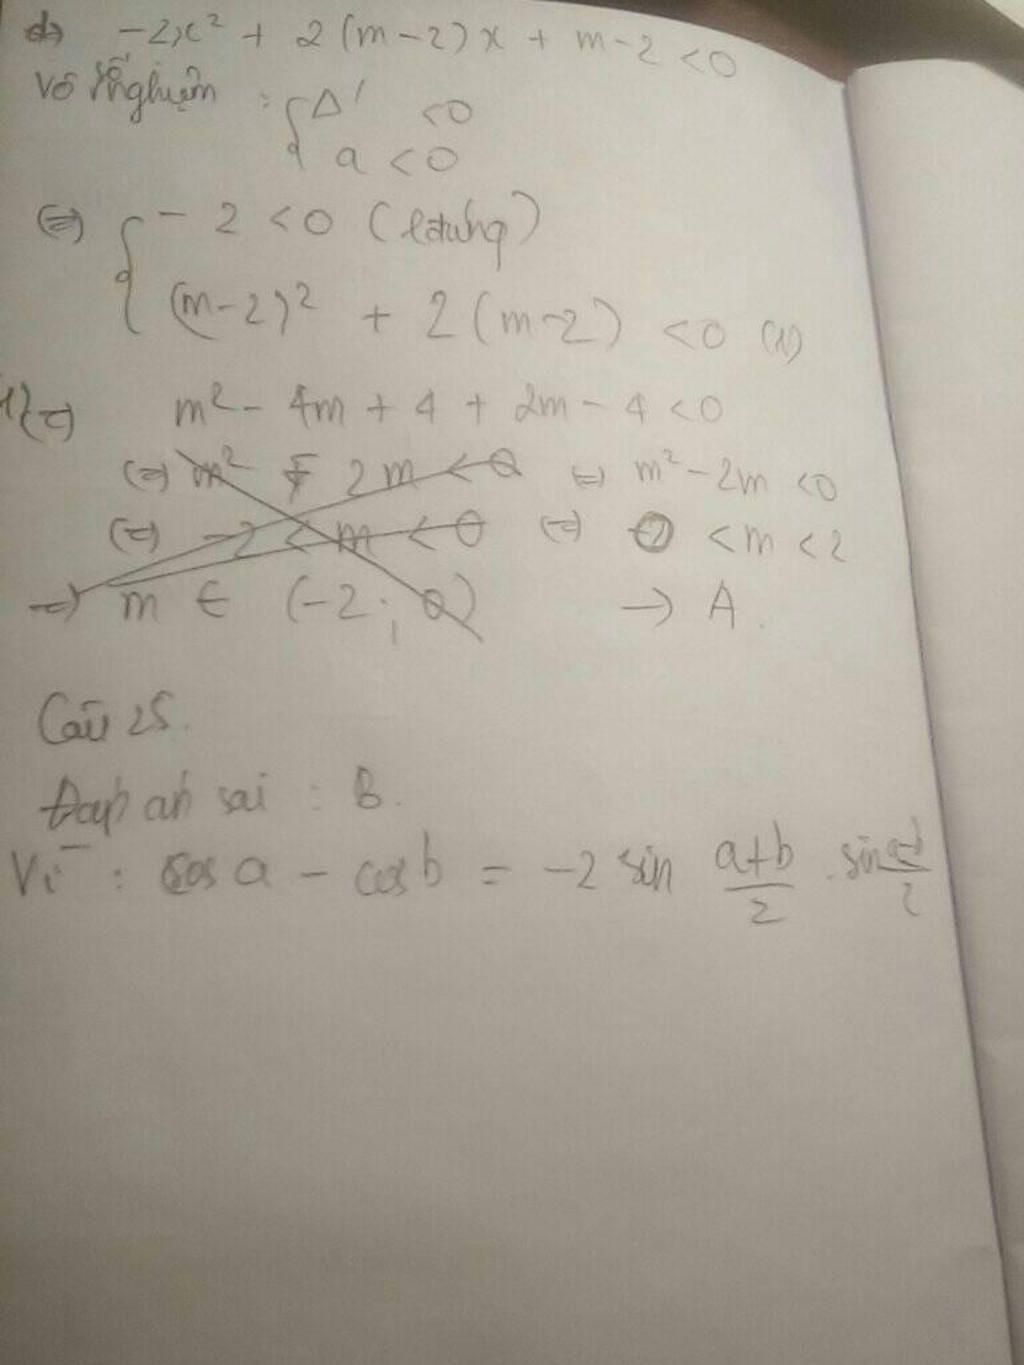 -2x² + 2(m-2)x + m-2 <0
vô nghiệm : { Δ' <0
a <0
(=) { -2 <0 (lđúng)
(m-2)² + 2(m-2) <0 (1)
(=) m² - 4m + 4 + 2m - 4 <0
(=) m² 2m <0 (=) m² - 2m <0
(=) -2 < m < 0 (=) 0 < m < 2
=) m ∈ (-2; 0) → A.
Câu 25.
Đáp án sai : B.
Vì : cos a - cos b = -2 sin a+b/2 . sin a-b/2